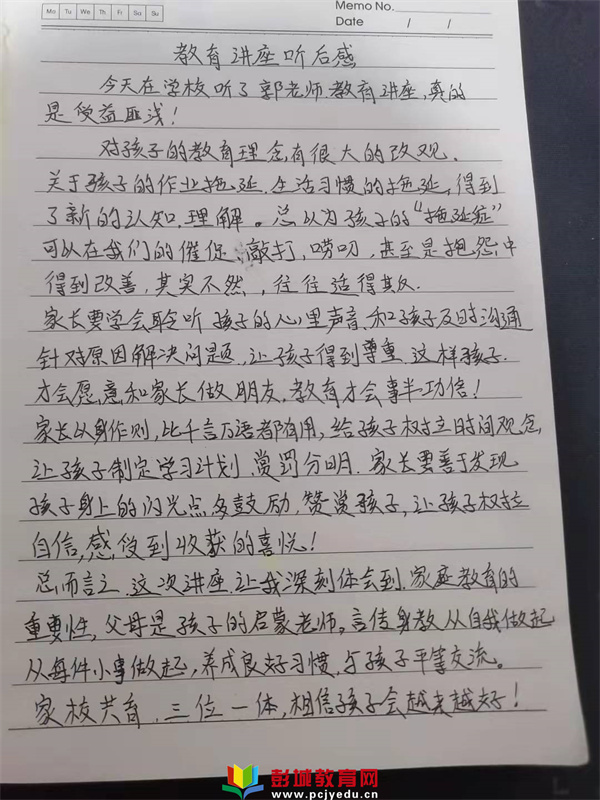 Mo Tu We Th Fr Sa Su
Memo No.
Date / /
教育讲座听后感
今天在学校听了郭老师教育讲座,真的
是受益匪浅!
对孩子的教育理念,有很大的改观.
关于孩子的作业拖延.生活习惯的拖延,得到
了新的认知.理解。总以为孩子的“拖延症”
可以在我们的催促、敲打,唠叨,甚至是抱怨,中
得到改善,其实不然,往往适得其反.
家长要学会聆听孩子的心里声音.和孩子及时沟通
针对原因解决问题,让孩子得到尊重.这样孩子.
才会愿意和家长做朋友,教育才会事半功倍!
家长以身作则,比千言万语都有用,给孩子树立时间观念,
让孩子制定学习计划.赏罚分明.家长要善于发现
孩子身上的闪光点多鼓励,赞赏孩子,让孩子树立
自信,感受到收获的喜悦!
总而言之.这次讲座.让我深刻体会到.家庭教育的
重要性,父母是孩子的启蒙老师。言传身教从自我做起
从每件小事做起,养成良好习惯,与孩子平等交流。
家校共育.三位一体,相信孩子会越来越好!
彭城教育网
www.pcjyedu.cn